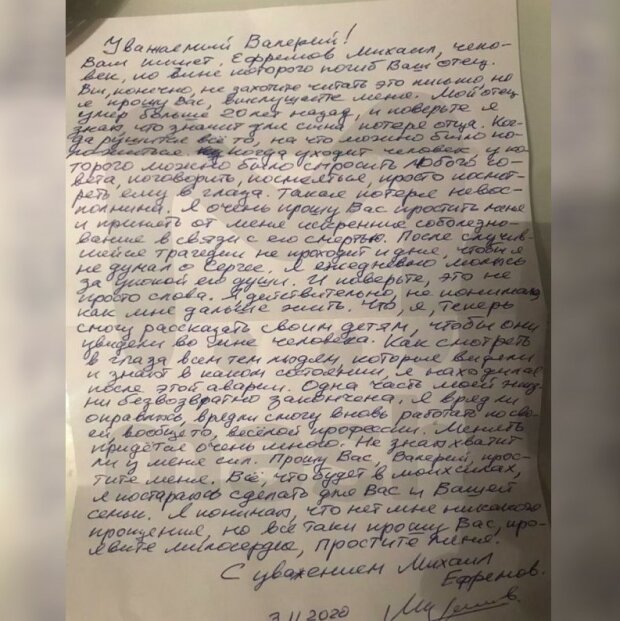 Уважаемый Валерий!
Вам пишет, Ефремов Михаил, чело-
век, по вине которого погиб Ваш отец.
Вы, конечно, не захотите читать это письмо, но
я прошу Вас, выслушайте меня. Мой отец
умер больше 20 лет назад, и поверьте я
знаю, что значит для сына потеря отца. Ког-
да рушится всё то, на что можно было по-
ложиться. когда уходит человек, у ко-
торого можно было спросить любого со-
вета, поговорить, посмеяться, просто посмот-
реть ему в глаза. Такая потеря невос-
полнима. Я очень прошу Вас простить меня
и принять от меня искренние соболезно-
вание в связи с его смертью. После случив-
шейся трагедии не проходит и дня, чтобы я
не думал о Сергее. Я ежедневно молюсь
за упокой его души. И поверьте, это не
просто слова. Я действительно, не понимаю,
как мне дальше жить. Что, я, теперь
смогу рассказать своим детям, чтобы они
увидели во мне человека. Как смотреть
в глаза всем тем людям, которые видели
и знают в каком состоянии, я находился
после этой аварии. Одна часть моей жиз-
ни безвозвратно закончена. Я вряд ли
оправлюсь, врядли смогу вновь работать по сво-
ей, вообще то, весёлой профессии. Менять
придётся очень много. Не знаю хватит
ли у меня сил. Прошу Вас, Валерий, прос-
тите меня. Всё, что будет в моих силах,
я постараюсь сделать для Вас и Вашей
семьи. Я понимаю, что нет мне никакого
прощения, но всё таки прошу Вас, про-
явите милосердие, простите меня.
С уважением Михаил
Ефремов.
3.11.2020